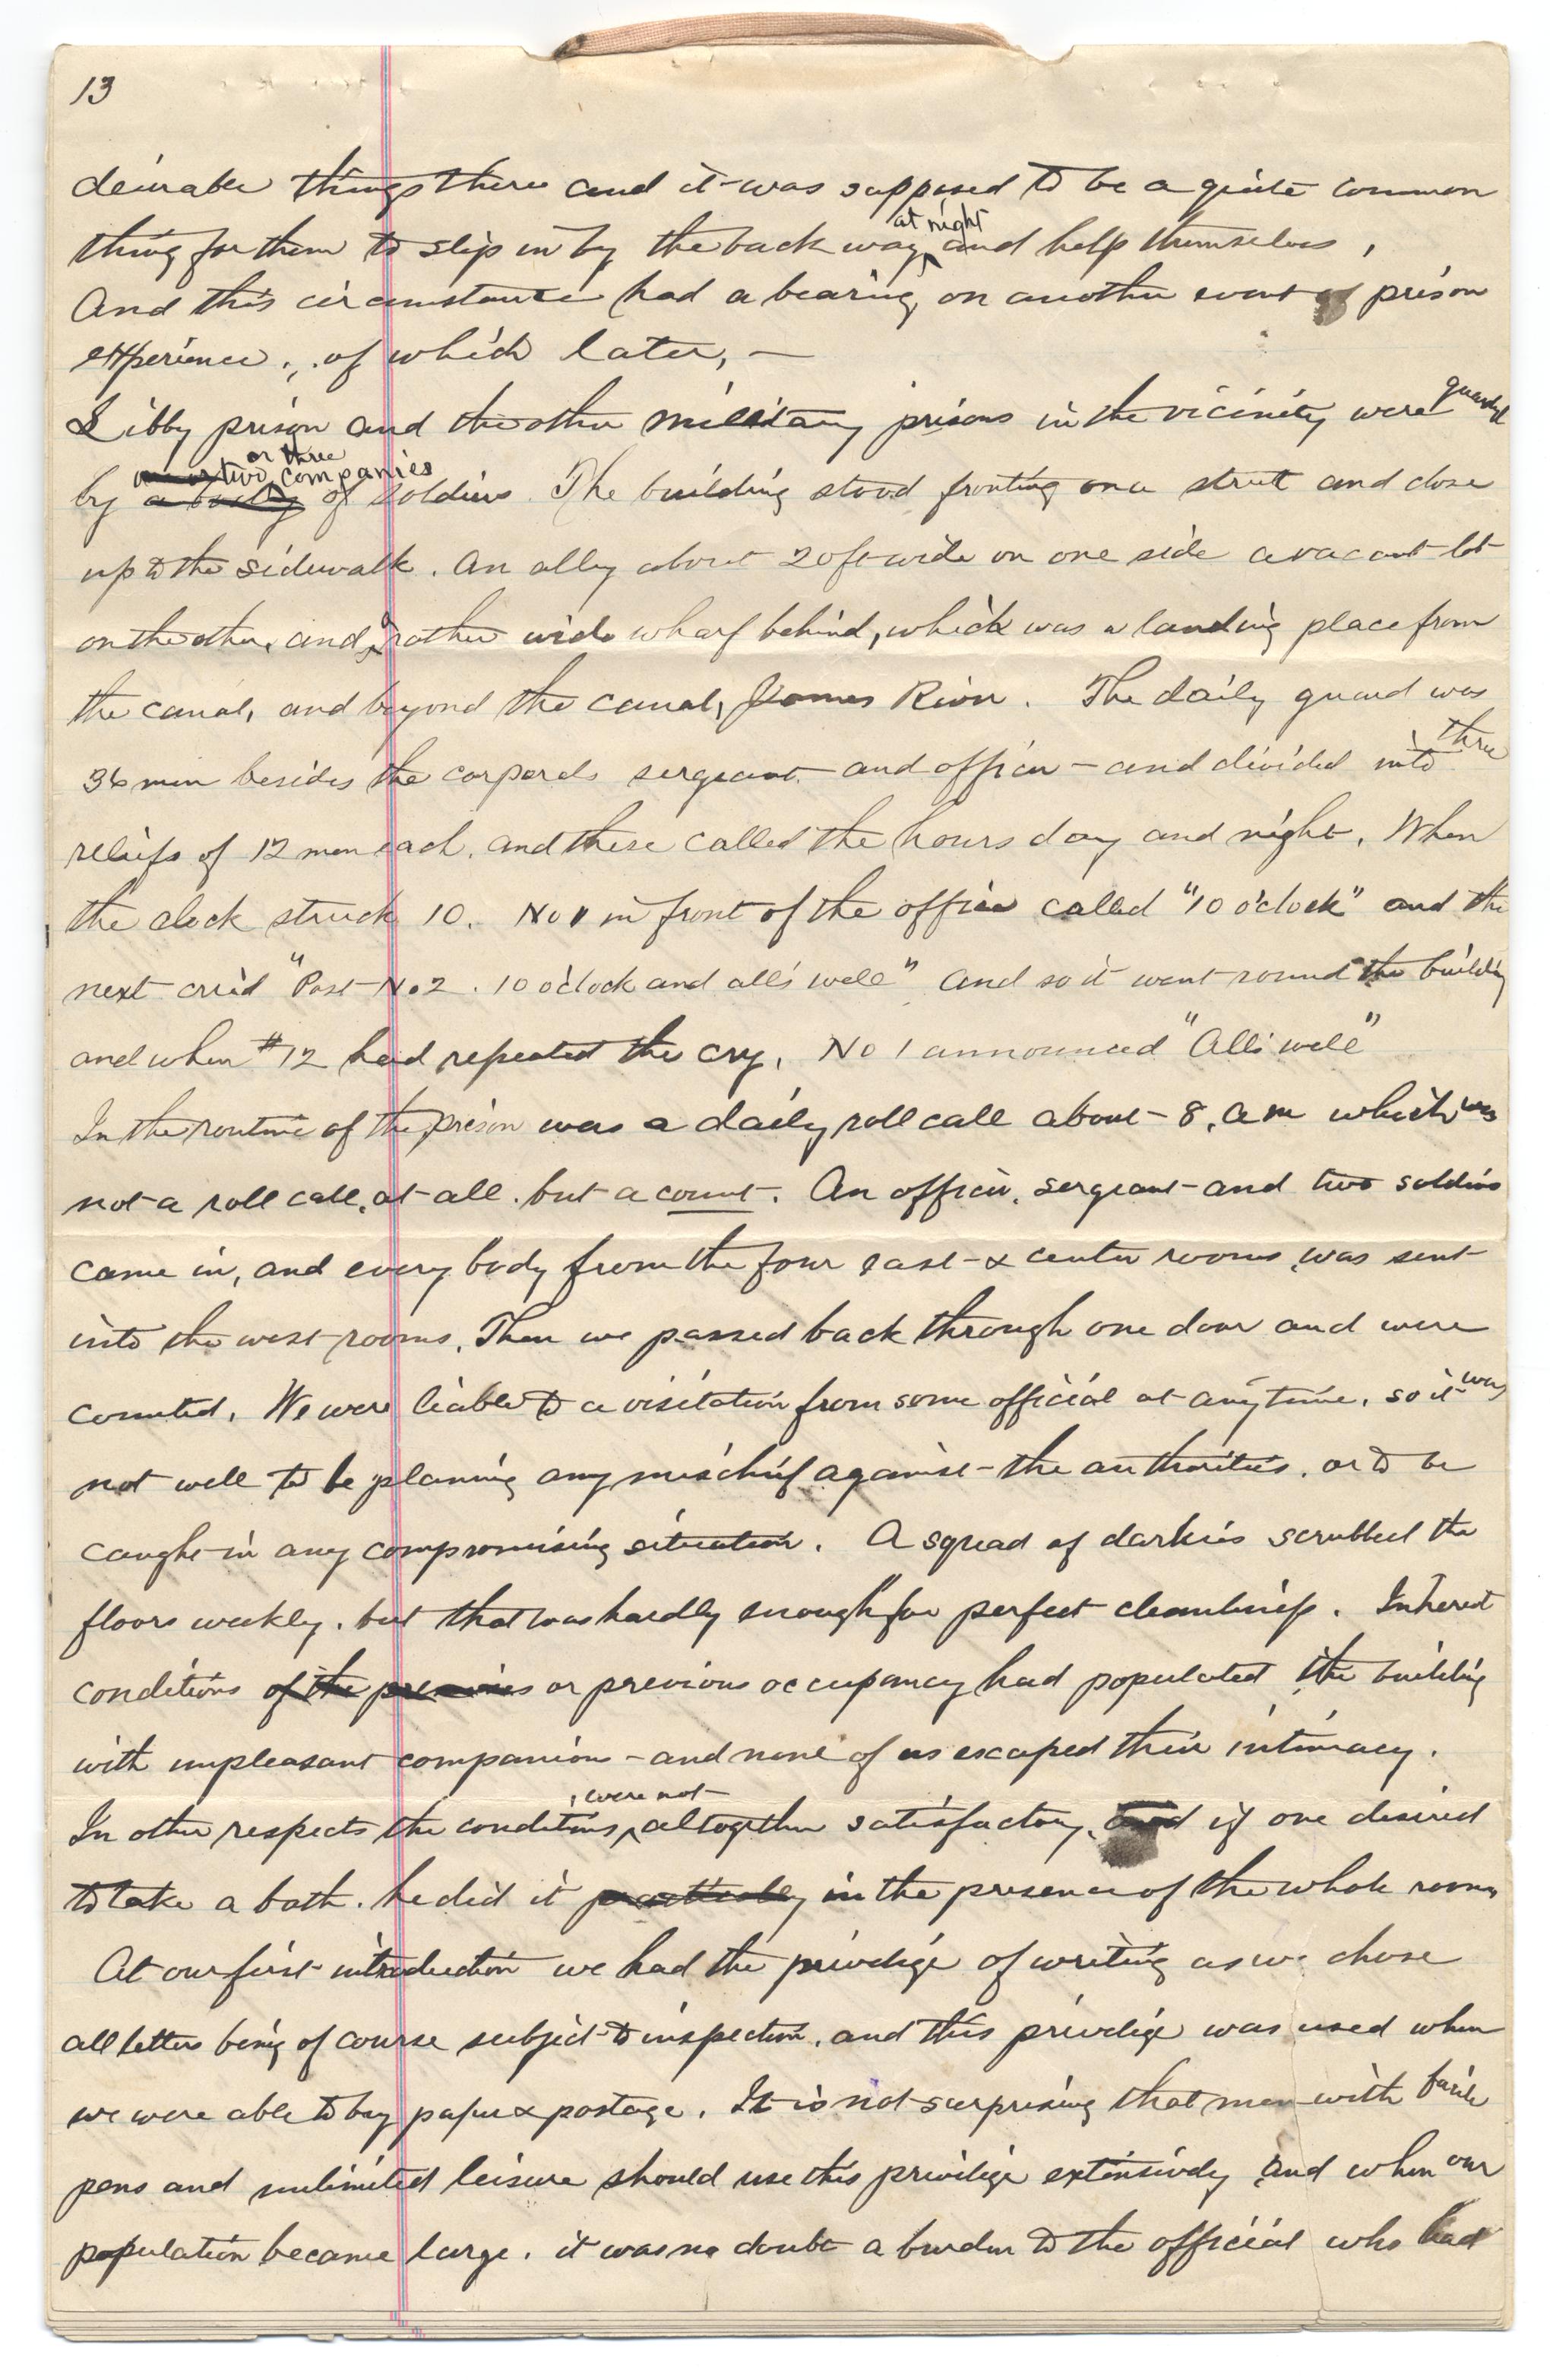 13
desirable things there and it was supposed to be a quite common
thing for them to slip in by the back way at night and help themselves,
And this circumstance had a bearing on another event of prison
experience, of which later, —
Libby prison and the other military prisons in the vicinity were guarded
by a body one or two or three companies of soldiers. The building stood fronting on a street and close
up to the sidewalk. An ally about 20 ft wide on one side a vacant lot
on the other, and a rather wide wharf behind, which was a landing place from
the canal, and beyond the canal, James River. The daily guard was
36 men besides the corporals sergeant and officer - and divided into three
reliefs of 12 men each, and these called the hours day and night. When
the clock struck 10. No 1 in front of the office called "10 o'clock" and the
next cried "Post No 2. 10 o'clock and all's well" And so it went round the building
and when #12 had repeated the cry, No 1 announced "All's well"
In the routine of the prison was a daily roll call about 8, a m which was
not a roll call, at all. but a count. An officer, sergeant and two soldiers
came in, and every body from the four east & center rooms was sent
into the west rooms. Then we passed back through one door and were
counted. We were liable to a visitation from some official at any time, so it was
not well to be planing any mischief against the authorities, or to be
caught in any compromising situation. A squad of darkies scrubbed the
floors weekly, but that was hardly enough for perfect cleanliness. Inherent
conditions of the premises or previous occupancy had populated the building
with unpleasant companions - and none of us escaped their intimacy.
In other respects the conditions, were not altogether satisfactory, and if one desired
to take a bath, he did it practically in the presence of the whole room,
At our first introduction we had the privilige of writing as we chose
all letters being of course subject to inspection, and this privilige was used when
we were able to buy paper & postage. It is not surprising that men with facile
pens and unlimited leisure should use this privilige extensively and when our
population became large, it was no doubt a burden to the official who had